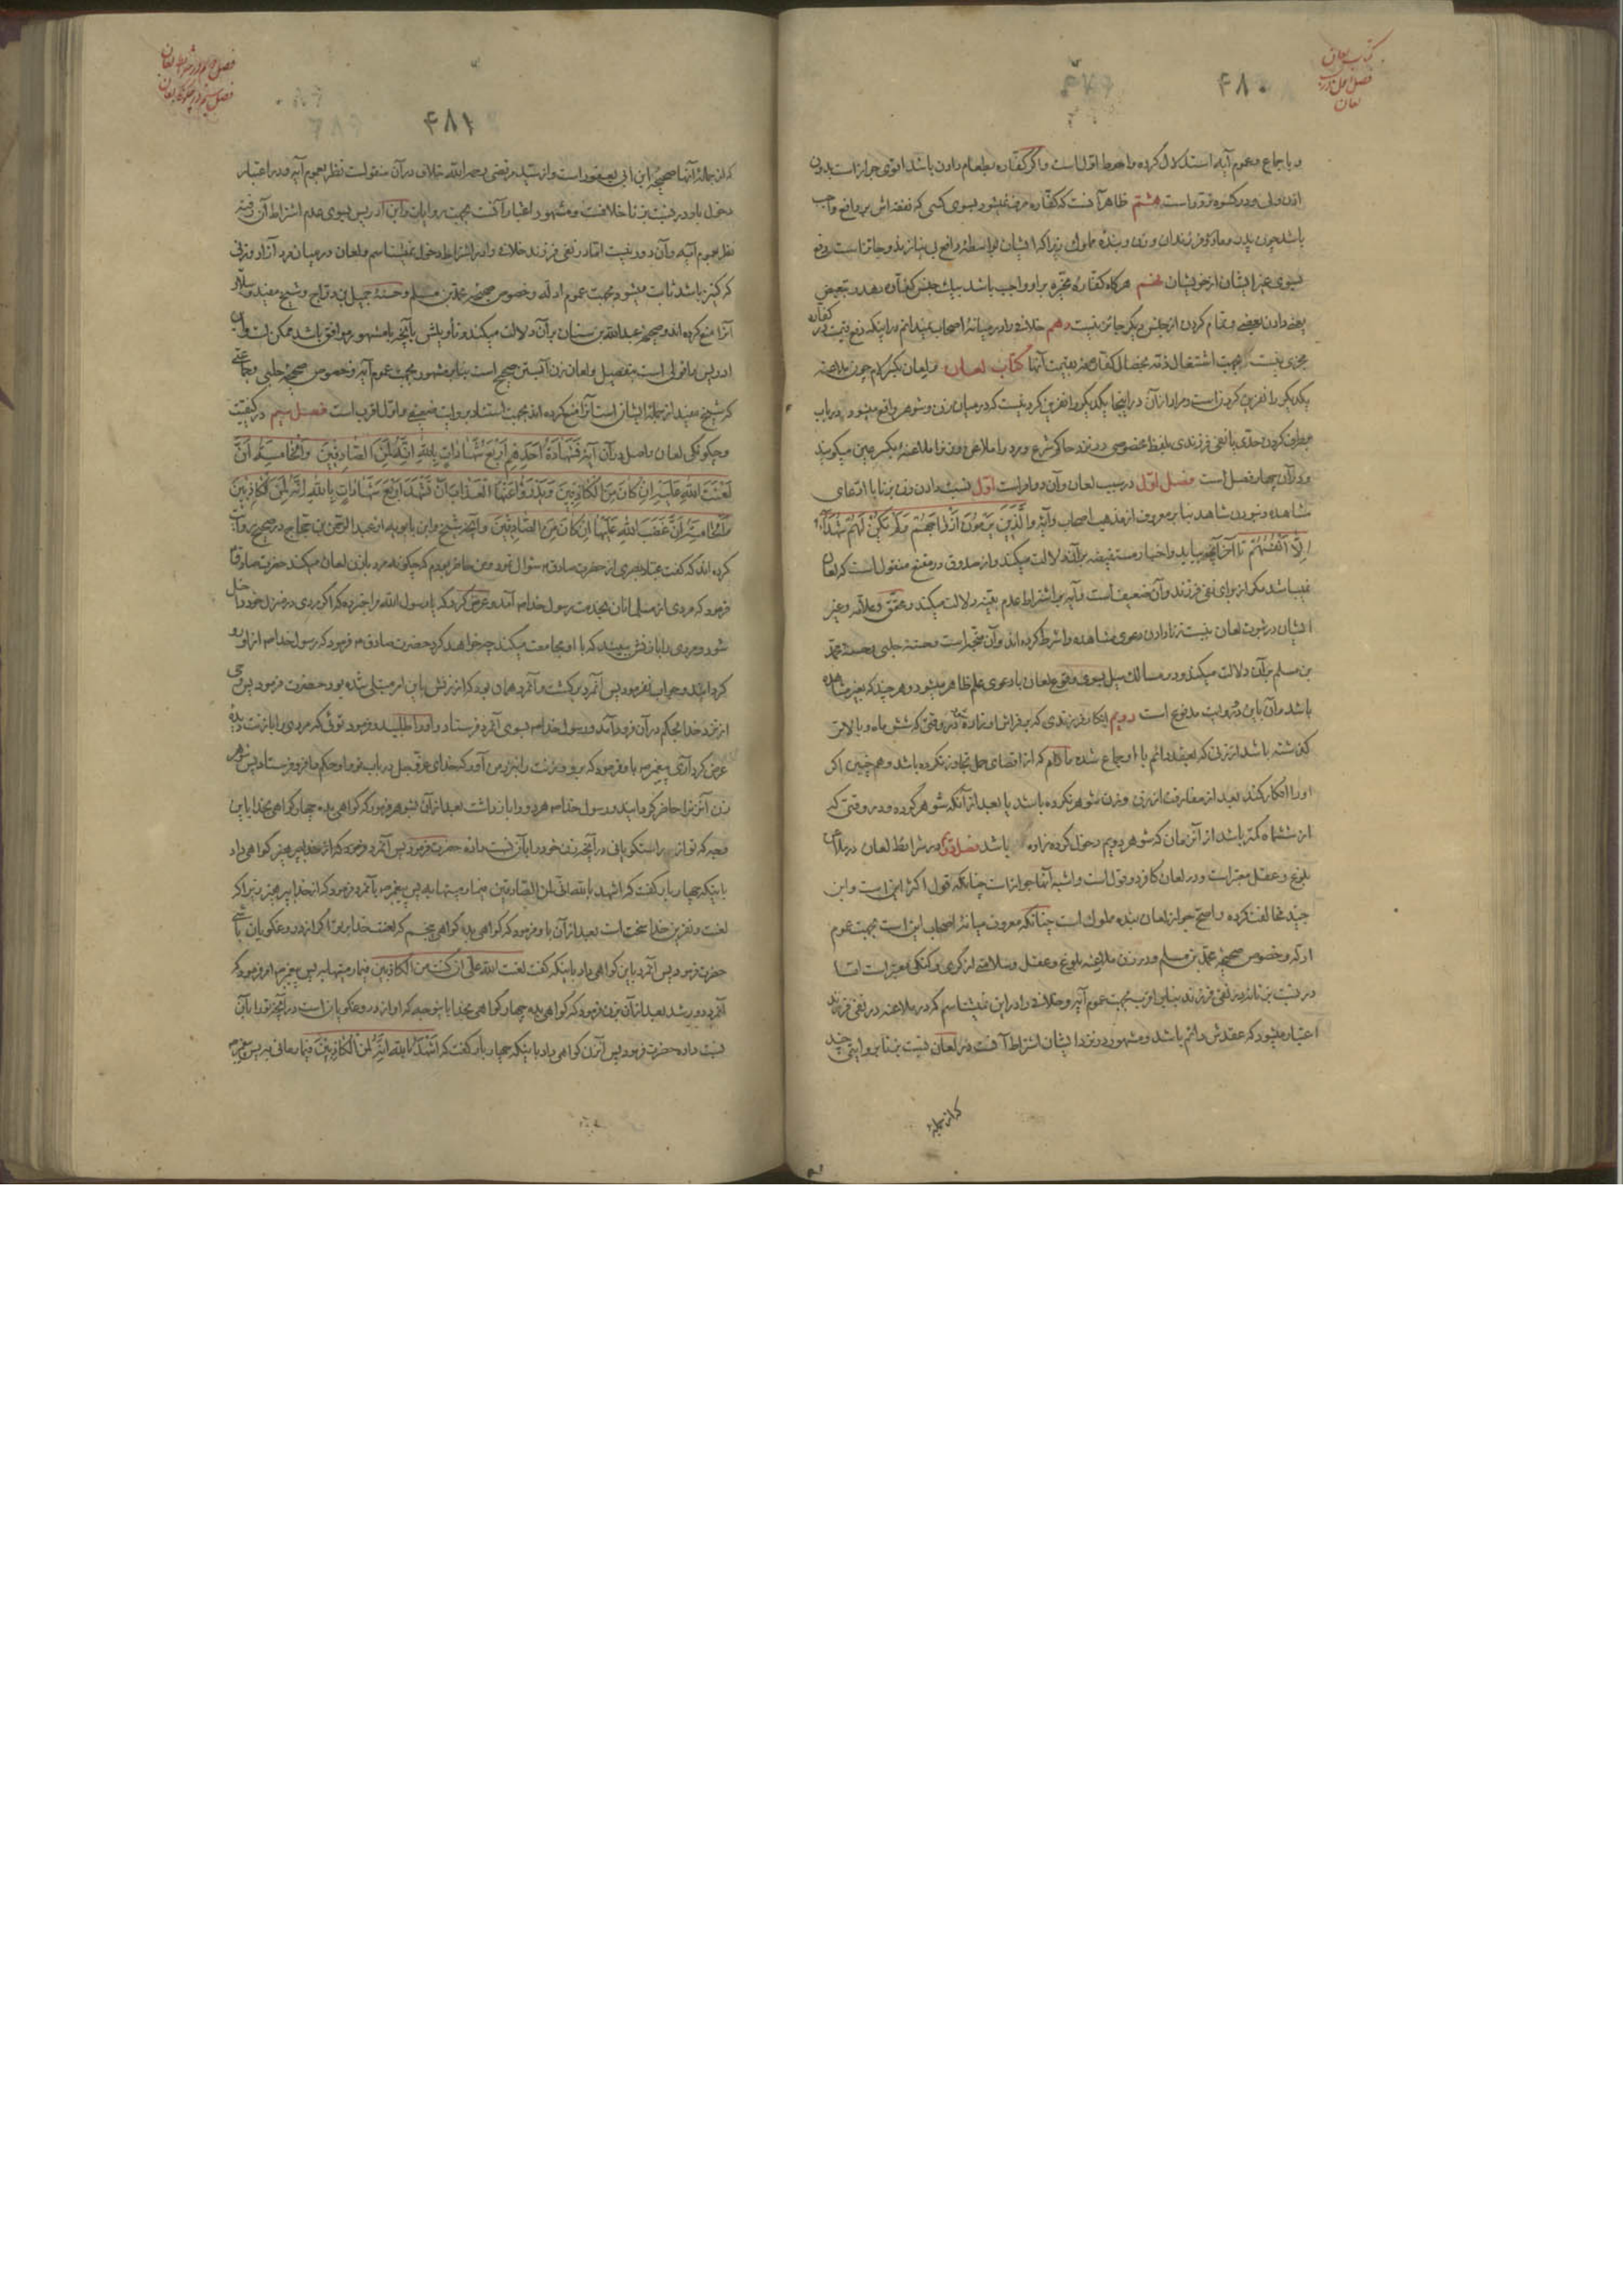 کتاب لعان
فصل اول
لعان
۴۸۰
و باجماع و عموم آیه استدلال کرده و احوط اولست و اگر کفاره بطعام دادن باشد اقوی جواز است بدون
اذن ولی و در کسوه تردد است هشتم ظاهر آنست که کفاره صرف نمیشود بسوی کسی که نفقه اش بر دافع واجب
باشد چون پدر و مادر و فرزندان و زن و بنده مملوک زیرا که ایشان بواسطه دافع بی نیازند و جائز است دفع
بسوی غیر ایشان از خویشان نهم هرگاه کفاره مخیره بر او واجب باشد بیک جنس کفاره دهد و تبعیض
بعضی و تمام کردن از جنس دیگر جائز نیست دهم خلافی را در میانه اصحاب نمیدانم در اینکه دفع قیمت در کفاره
مجزی نیست بجهت اشتغال ذمه بخصال کفاره نه بقیمت آنها کتاب لعان و لعان بکسر لام چون ملاعنه
یکدیگر را نفرین کردن است و مراد از آن در اینجا یکدیگر را نفرین کردنیست که در میان زن و شوهر واقع میشود در باب
برطرف کردن حدی یا نفی فرزندی بلفظ مخصوصی در نزد حاکم شرع و مرد را ملاعن و زن را ملاعنه بکسر عین میگویند
و در آن چهار فصل است فصل اول در سبب لعان و آن دو امر است اول نسبت دادن زن بزنا با ادعای
مشاهده و نبودن شاهد بنابر معروف از مذهب اصحاب و آیه وَالَّذِينَ يَرْمُونَ أَزْوَاجَهُمْ وَلَمْ يَكُنْ لَهُمْ شُهَدَاءُ
إِلَّا أَنْفُسُهُمْ تا آخر آنچه بیاید و اخبار مستفیضه بر آن دلالت میکند و از صدوق در مقنع منقول است که لعان
نمیباشد مگر از برای نفی فرزند و آن ضعیف است و آیه بر اشتراط عدم بینه دلالت میکند و محقق و علامه و غیر
ایشان در ثبوت لعان بنسبت زنا دادن دعوی مشاهده را شرط کرده اند و آن متجه است و حسنه حلبی و حسنه محمد
بن مسلم بر آن دلالت میکند و در مسالک میل بسوی وقوع لعان با دعوی علم ظاهر میشود و هر چند که بغیر مشاهده
باشد و آن باین دو روایت مدفوع است دویم انکار فرزندی که بر فراش او زاده در وقتی که شش ماه و بالاتر
گذشته باشد از زنی که بعقد دائم با او جماع شده مادام که از اقصای حمل تجاوز نکرده باشد و هم چنین اگر
او را انکار کند بعد از مفارقت از زن و زن شوهر نکرده باشد یا بعد از آنکه شوهر کرده و در وقتی که
از ششماه کمتر باشد از آن زمان که شوهر دویم دخول کرده زاده باشد فصل دویم در شرایط لعان در ملاعن
بلوغ و عقل معتبر است و در لعان کافر دو قول است و اشبه آنها جواز است چنانکه قول اکثر این است و ابن
جنید مخالفت کرده و اصح جواز لعان بنده مملوک است چنانکه معروف میانه اصحاب این است بجهت عموم
ادله و خصوص صحیحه محمد بن مسلم و در زن ملاعنه بلوغ و عقل و سلامتی از کری و گنگی معتبر است اما
در نسبت بزنا نه در نفی فرزند بنابر اقرب بجهت عموم آیه و خلافی را در این نمیشناسم که در ملاعنه در نفی فرزند
اعتبار میشود که عقدش دائم باشد و مشهور در نزد ایشان اشتراط آنست در لعان نسبت بزنا بر روایتی چند
که از جمله
فصل دویم در شرایط لعان
فصل سیم در چگونگی لعان
۴۸۱
که از جمله آنها صحیحه ابن ابی یعفور است و از سید مرتضی رحمه الله خلاف در آن منقولست نظر بعموم آیه و در اعتبار
دخول باو در نسبت بزنا خلافست و مشهور اعتبار آنست بجهت روایات و ابن ادریس بسوی عدم اشتراط آن رفته
نظر بعموم آیه و آن دور نیست اما در نفی فرزند خلافی را در اشتراط دخول نمیشناسم و لعان در میان مرد آزاد و زنی
که کنیز باشد ثابت میشود بجهت عموم ادله و خصوص صحیحه محمد بن مسلم و حسنه جمیل بن دراج و شیخ مفید و سلار
آنرا منع کرده اند و صحیحه عبدالله بن سنان بر آن دلالت میکند و تاویلش بآنچه با مشهور موافق باشد ممکن است و ابن
ادریس را قولی است بتفصیل و لعان زن آبستن صحیح است بنابر مشهور بجهت عموم آیه و خصوص صحیحه حلبی و جماعتی
که شیخ مفید از جمله ایشان است آنرا منع کرده اند بجهت استناد بروایت ضعیفی و اول اقرب است فصل سیم در کیفیت
و چگونگی لعان و اصل در آن آیه فَشَهَادَةُ أَحَدِهِمْ أَرْبَعُ شَهَادَاتٍ بِاللَّهِ إِنَّهُ لَمِنَ الصَّادِقِينَ وَالْخَامِسَةُ أَنَّ
لَعْنَتَ اللَّهِ عَلَيْهِ إِنْ كَانَ مِنَ الْكَاذِبِينَ وَيَدْرَؤُا عَنْهَا الْعَذَابَ أَنْ تَشْهَدَ أَرْبَعَ شَهَادَاتٍ بِاللَّهِ إِنَّهُ لَمِنَ الْكَاذِبِينَ
وَالْخَامِسَةَ أَنَّ غَضَبَ اللَّهِ عَلَيْهَا إِنْ كَانَ مِنَ الصَّادِقِينَ و آنچه شیخ و ابن بابویه از عبدالرحمن بن حجاج در صحیح روایت
کرده اند که گفت عباد بصری از حضرت صادق سؤال نمود و من حاضر بودم که چگونه مرد با زن لعان میکند حضرت صادق
فرمود که مردی از مسلمانان بخدمت رسول خدا آمد و عرض کرد که یا رسول الله مرا خبر ده که اگر مردی در منزل خود داخل
شود و مردی را با زنش ببیند که با او مجامعت میکند چه خواهد کرد حضرت صادق فرمود که رسول خدا از او رو
گردانید و جواب نفرمود پس آنمرد برگشت و آنمرد همان بود که از زنش باین امر مبتلی شده بود حضرت فرمود پس وحی
از نزد خدا بحکم در آن فرود آمد و رسول خدا بسوی آنمرد فرستاد و او را طلبید و فرمود توئی که مردی را با زنت دیده
عرض کرد آری پیغمبر باو فرمود که برو و زنت را بنزد من آور که خدای عزوجل در باب تو و او حکم را فرو فرستاد پس شوهر
زن آنزن را حاضر گردانید و رسول خدا هر دو را باز داشت بعد از آن بشوهر فرمود که گواهی بده چهار گواهی بخدا باین
وجه که تو از راستگویانی در آنچه زن خود را بآن نسبت داده حضرت فرمود پس آنمرد
باینکه چهار بار گفت که اشهد بالله انی لمن الصادقین فیما رمیتها به پس پیغمبر بآنمرد فرمود که از خدا بپرهیز زیرا که
لعنت و نفرین خدا سخت است بعد از آن باو فرمود که گواهی بده گواهی پنجم که لعنت خدا بر تو اگر از دروغگویان باشی
حضرت فرمود پس آنمرد باین گواهی داد باینکه گفت لعنت الله علی ان کنت من الکاذبین فیما رمیتها به پس پیغمبر امر فرمود که
آنمرد دور شد بعد از آن بزن فرمود که گواهی بده چهار گواهی بخدا باین وجه که او از دروغگویان است در آنچه تو را بآن
نسبت داده حضرت فرمود پس آنزن گواهی داد باینکه چهار بار گفت که أَشْهَدُ بِاللَّهِ إِنَّهُ لَمِنَ الْكَاذِبِينَ فیما رمانی به پس پیغمبر